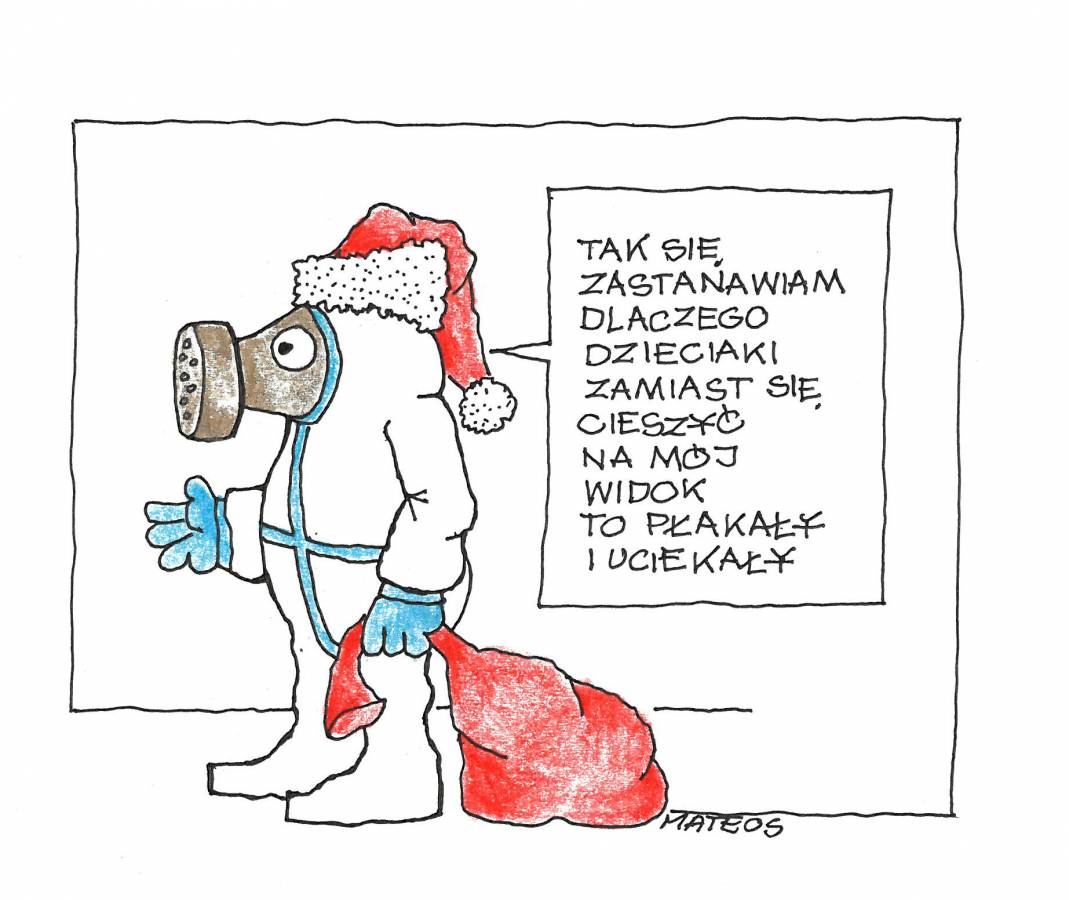 TAK SIĘ
ZASTANAWIAM
DLACZEGO
DZIECIAKI
ZAMIAST SIĘ
CIESZYĆ
NA MÓJ
WIDOK
TO PŁAKAŁY
I UCIEKAŁY
MATEOS